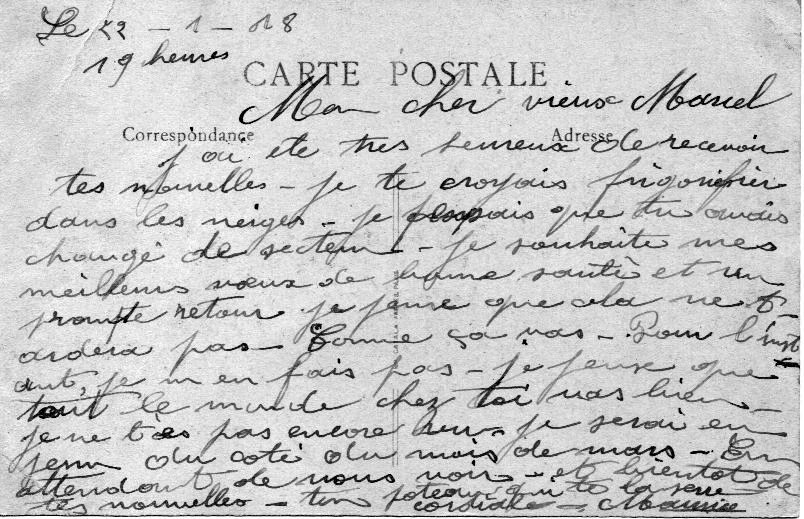 Le 22 - 1 - 18
19 heures
CARTE POSTALE
Mon cher vieux Marcel
Correspondance Adresse
j ai ete tres heureux de recevoir
tes nouvelles - je te croyais frigorifier
dans les neiges - je pensais que tu avais
changé de secteur - je souhaite mes
meilleurs vœux de bonne santé et un
prompte retour je pense que cela ne t
ardera pas - Comme ça vas - Pour l'inst
ant, je m en fais pas - je pense que
tout le monde chez toi vas bien -
je ne t ai pas encore vu - je serai en
perm du coté du mois de mars - En
attendant de nous voir - et bientot de
tes nouvelles - ton poteau qui te la serre
cordiale - Maurice